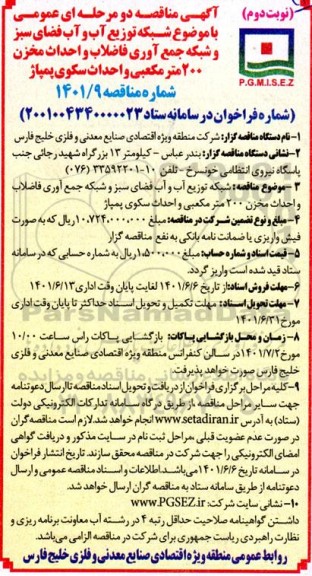 (نوبت دوم)
آگهی مناقصه دو مرحله ای عمومی
با موضوع شبکه توزیع آب و آب فضای سبز
و شبکه جمع آوری فاضلاب و احداث مخزن
۲۰۰ متر مکعبی و احداث سکوی پمپاژ
P.G.M.I.S.E.Z
شماره مناقصه ۱۴۰۱/۹
(شماره فراخوان در سامانه ستاد ۲۰۰۱۰۰۴۳۴۰۰۰۰۰۲۳)
۱-نام دستگاه مناقصه گزار: شرکت منطقه ویژه اقتصادی صنایع معدنی و فلزی خلیج فارس
۲-نشانی دستگاه مناقصه گزار: بندر عباس - کیلومتر ۱۳ بزرگراه شهید رجائی جنب
پاسگاه نیروی انتظامی خونسرخ - تلفن ۱۰-۳۳۵۹۲۲۰۱ (۰۷۶)
۳- موضوع مناقصه : شبکه توزیع آب و آب فضای سبز و شبکه جمع آوری فاضلاب
و احداث مخزن ۲۰۰ متر مکعبی و احداث سکوی پمپاژ
۴- مبلغ و نوع تضمین شرکت در مناقصه: مبلغ ۱۰،۷۲۴،۰۰۰،۰۰۰ ریال که به صورت
فیش واریزی یا ضمانت نامه بانکی به نفع مناقصه گزار
۵- قیمت اسناد و شماره حساب: مبلغ ۱،۵۰۰،۰۰۰ ریال به شماره حسابی که در سامانه
ستاد قید شده است واریز گردد.
۶-مهلت فروش اسناد: از تاریخ ۱۴۰۱/۶/۶ لغایت پایان وقت اداری ۱۴۰۱/۶/۱۳
۷-مهلت تحویل اسناد: مهلت تکمیل و تحویل اسناد حداکثر تا پایان وقت اداری
مورخ ۱۴۰۱/۶/۳۱
۸- زمان و محل بازگشایی پاکات: بازگشایی پاکات راس ساعت ۱۰/۰۰
مورخ ۱۴۰۱/۷/۲ در سالن کنفرانس منطقه ویژه اقتصادی صنایع معدنی و فلزی
خلیج فارس صورت خواهد پذیرفت.
۹-کلیه مراحل برگزاری فراخوان از دریافت و تحویل اسناد مناقصه تا ارسال دعوتنامه
جهت سایر مراحل مناقصه، از طریق درگاه سامانه تدارکات الکترونیکی دولت
(ستاد) به آدرس www.setadiran.ir انجام خواهد شد. لازم است مناقصه گران
در صورت عدم عضویت قبلی ،مراحل ثبت نام در سایت مذکور و دریافت گواهی
امضای الکترونیکی را جهت شرکت در مناقصه محقق سازند. تاریخ انتشار فراخوان
در سامانه تاریخ ۱۴۰۱/۶/۶ می باشد. اطلاعات و اسناد مناقصه عمومی و ارسال
دعوتنامه از طریق سامانه ستاد به مناقصه گران ارسال خواهد شد.
۱۰- نشانی سایت شرکت: www.PGSEZ.ir
داشتن گواهینامه صلاحیت حداقل رتبه ۴ در رشته آب معاونت برنامه ریزی و
نظارت راهبردی ریاست جمهوری برای شرکت در مناقصه الزامی می باشد.
روابط عمومی منطقه ویژه اقتصادی صنایع معدنی و فلزی خلیج فارس